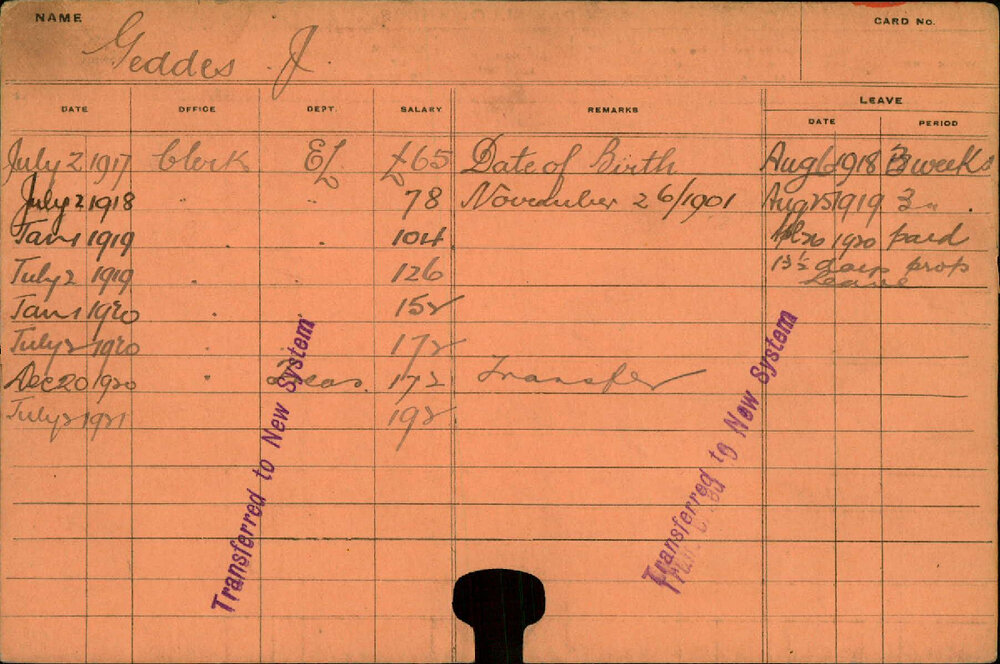 NAME
CARD No.
Geddes J.
DATE OFFICE DEPT. SALARY REMARKS LEAVE
DATE PERIOD
July 2 1917 Clerk EL £65 Date of Birth Aug 6 1918 3 weeks
July 2 1918 " " 78 November 26/1901 Aug 25 1919 3 "
Jan 1 1919 " " 104 26 1920 paid
July 2 1919 " 126 13½ days prop
Leave
Jan 1 1920 " 152
July 2 1920 " 172
Dec 20 1920 " Treas. 172 Transfer
July 2 1921 192
Transferred to New System
Transferred to New System